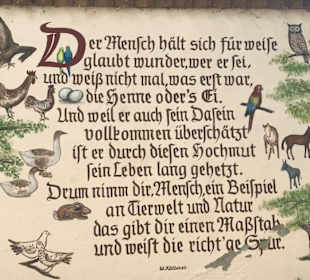 Der Mensch hält sich für weise
glaubt wunder, wer er sei,
und weiß nicht mal, was erst war,
die Henne oder's Ei.
Und weil er auch sein Dasein
vollkommen überschätzt
ist er durch diesen Hochmut
sein Leben lang gehetzt.
Drum nimm dir, Mensch, ein Beispiel
an Tierwelt und Natur
das gibt dir einen Maßstab
und weist die richt'ge Spur.